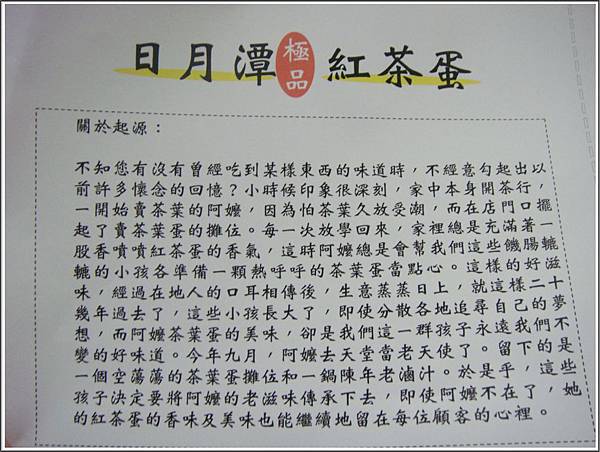 日月潭極品紅茶蛋
關於起源：
不知您有沒有曾經吃到某樣東西的味道時，不經意勾起出以
前許多懷念的回憶？小時候印象很深刻，家中本身開茶行，
一開始賣茶葉的阿嬤，因為怕茶葉久放受潮，而在店門口擺
起了賣茶葉蛋的攤位。每一次放學回來，家裡總是充滿著一
股香噴噴紅茶蛋的香氣，這時阿嬤總是會幫我們這些饑腸轆
轆的小孩各準備一顆熱呼呼的茶葉蛋當點心。這樣的好滋
味，經過在地人的口耳相傳後，生意蒸蒸日上，就這樣二十
幾年過去了，這些小孩長大了，即使分散各地追尋自己的夢
想，而阿嬤茶葉蛋的美味，卻是我們這一群孩子永遠我們不
變的好味道。今年九月，阿嬤去天堂當老天使了。留下的是
一個空蕩蕩的茶葉蛋攤位和一鍋陳年老滷汁。於是乎，這些
孩子決定要將阿嬤的老滋味傳承下去，即使阿嬤不在了，她
的紅茶蛋的香味及美味也能繼續地留在每位顧客的心裡。